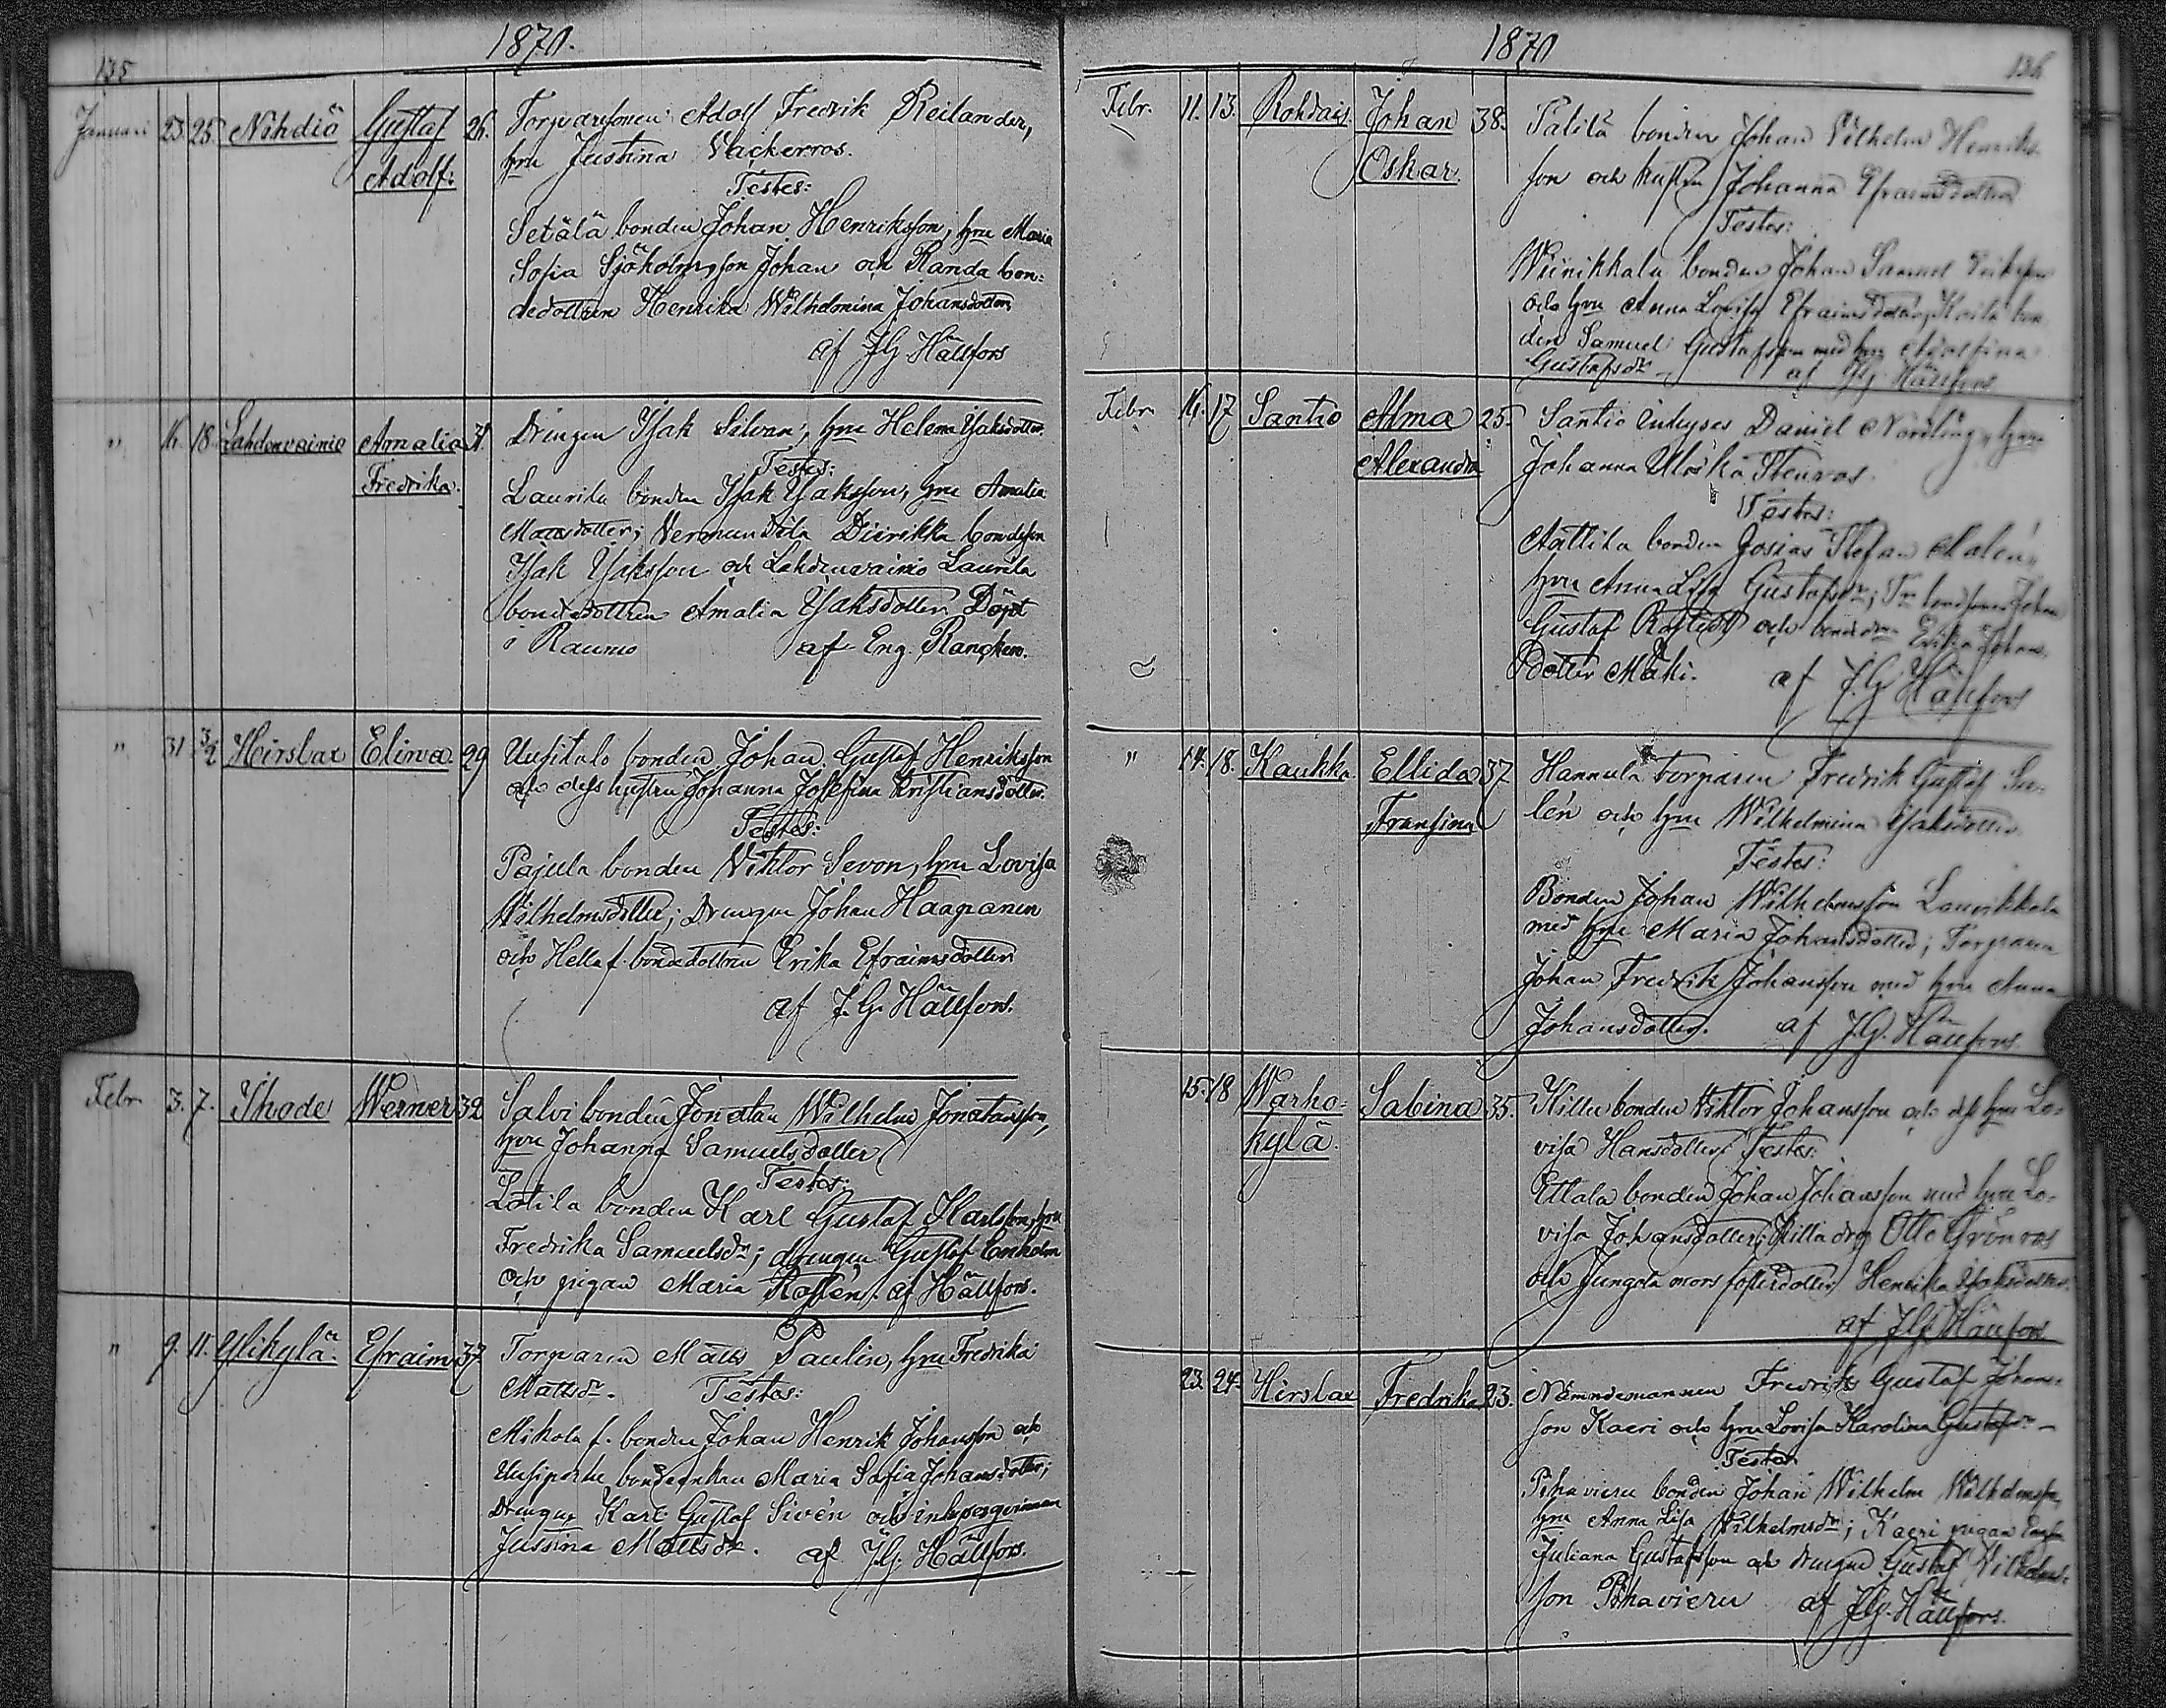 1870.
135
Januari 23 25 Nihdiö Gustaf 26. Torparesonen Adolf Fredrik Reilander,
Adolf: hru Justina Vackerros.
Testes:
Setälä bonden Johan Henriksson, hru Maria
Sofia Sjöholm, son Johan och Randa bon-
dedottren Henrika Wilhelmina Johansdotter
af JG Hällfors
" 16. 18. Lahdenvainio Amalia 31. Drengen Isak Silvan, hru Helena Isaksdotter.
Fredrika. Testes:
Laurila bonden Isak Isaksson, hru Amalia
Mattsdotter; Vermuntila Diirikka bondeson
Isak Isaksson och Lahdenvainio Laurila
bondedottren Amalia Isaksdotter. Döpt
i Raumo af Eng. Rancken.
" 31 3/2 Hirslax Elina. 29 Uusitalo bonden Johan Gustaf Henriksson
och dess hustru Johanna Josefina Kristiansdotter.
Testes:
Pajula bonden Viktor Sevon, hru Lovisa
Wilhelmsdotter; Drengen Johan Haapanen
och Hella f. bondedottren Erika Efraimsdotter
af J. G. Hällfors.
Febr. 3. 7. Ihode Werner 32 Salvi bonden Jonatan Wilhelm Jonatansson,
hru Johanna Samuelsdotter
Testes:
Lotila bonden Karl Gustaf Karlsson, hru
Fredrika Samuelsdr; drengen Gustaf Enholm
och pigan Maria Rostén. af Hällfors.
" 9. 11. Ylikylä. Efraim 37 Torparen Matts Paulin, hru Fredrika
Mattsdr. Testes:
Mikola f. bonden Johan Henrik Johansson och
Uusiperhe bondeenkan Maria Sofia Johansdotter;
Drengen Karl Gustaf Sivén och inhysesqvinnan
Jussina Mattsdr. af J.G. Hällfors.
1870
136
Febr. 11. 13. Rohdais. Johan 38. Palila bonden Johan Vilhelm Henriks-
Oskar. son och hustru Johanna Efraimsdotter
Testes:
Wiinikkala bonden Johan Samuel Eriksson
och hru Anna Lovisa Efraimsdotter, Koila bon
den Samuel Gustafsson med hru Adolfina
Gustafsdr af JG. Hällfors
Febr. 16. 17 Santio Alma 25. Santio inhyses Daniel Nordling, hru
Alexandra Johanna Ulrika Stenros.
Testes:
Anttila bonden Josias Stefan Malén,
hru Anna Lisa Gustafsdr; Johan
Gustaf och Erika Johans-
dotter Mäki. af J.G. Hällfors
" 14. 18. Kaukka. Ellida 37 Hannula torparen Fredrik Gustaf Su-
Fransina lén och hru Wilhelmina Isaksdotter.
Testes:
Bonden Johan Wilhelmsson Lauvikkala
med hru Maria Johansdotter; Torparen
Johan Fredrik Johansson med hru Anna
Johansdotter. af J.G. Hällfors.
15. 18 Warho- Sabina 35. Killu bonden Viktor Johansson och dess hru Lo-
kylä. visa Hansdotter. Testes:
Ettala bonden Johan Johansson med hru Lo-
visa Johansdotter; Killa drg Otto Grönroos
och Henrika Isaksdotter.
af J.G. Hällfors
23. 24. Hirslax Fredrika 23. Nämndemannen Fredrik Gustaf Johans-
son Kaeri och hru Lovisa Karolina Gustafsdr
Testes:
Pihavieru bonden Johan Wilhelm Wilhelmsson,
hru Anna Lisa Vilhelmsdr; Kaeri pigan
Juliana Gustafsson och drengen Gustaf Vilhelms-
son Pihavieru af J.G. Hällfors.